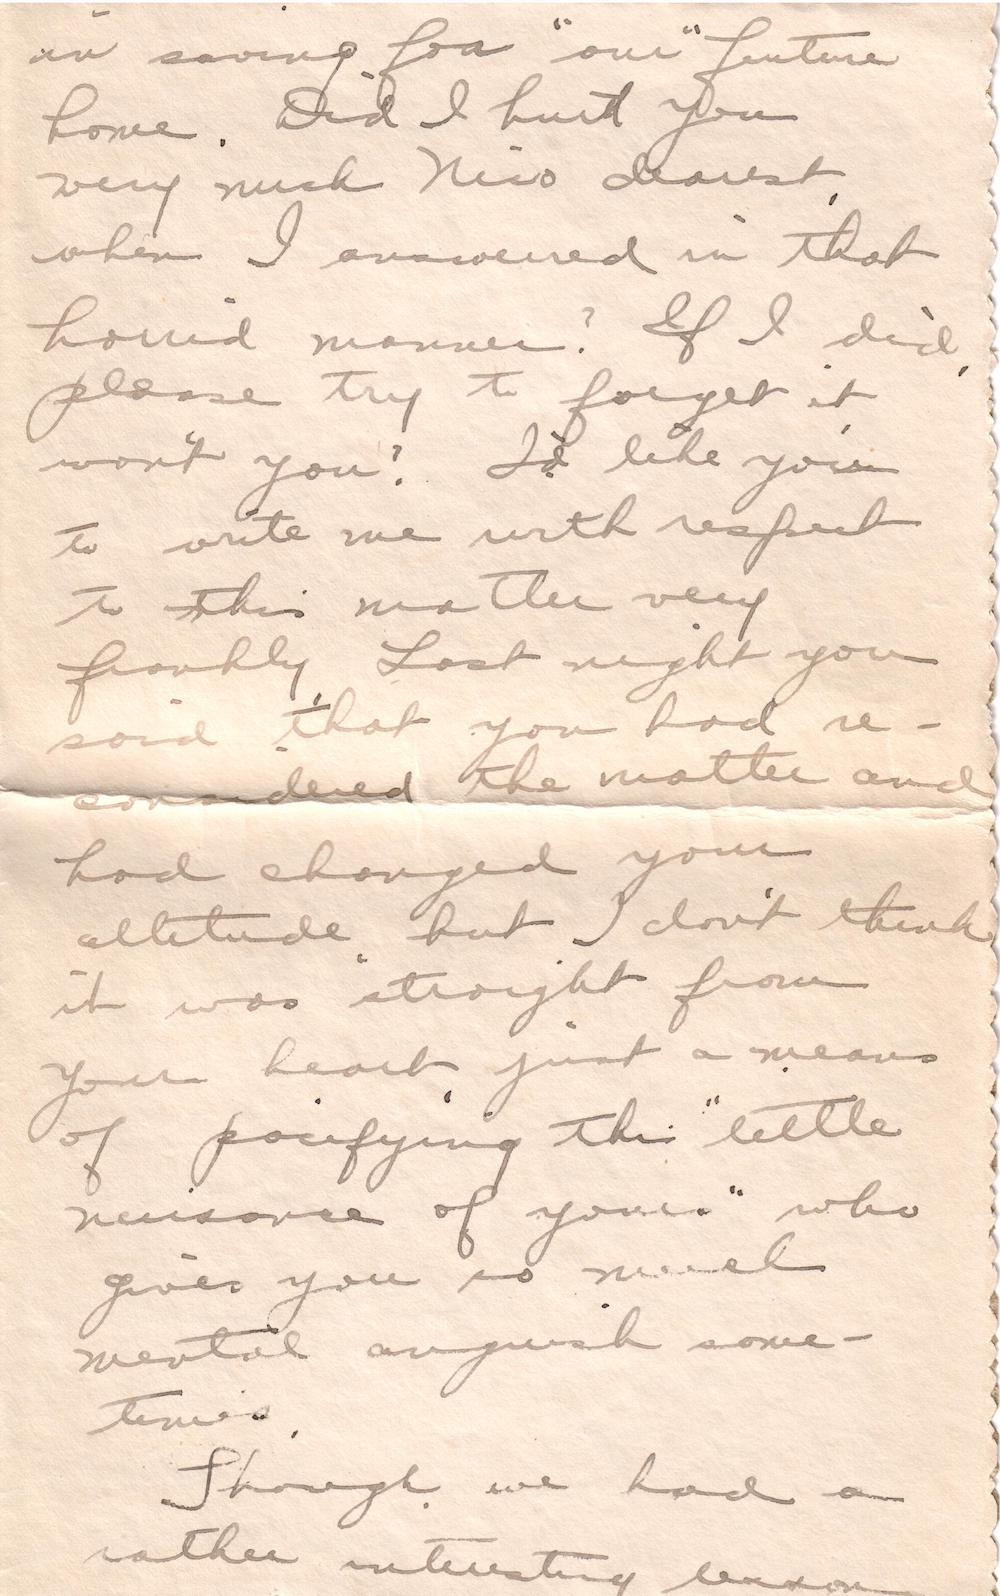 in saving for "our" future
home. Did I hurt you
very much Nico dearest,
when I answered in that
horrid manner? If I did,
please try to forget it
won't you? I'd like you
to write me with respect
to this matter very
frankly. Last night you
said, that you had re-
considered the matter and
had changed your
attitude, but I don't think
it was straight from
your heart, just a means
of pacifying this "little
nuisance of yours" who
gives you so much
mental anguish some-
times.
Though we had a
rather interesting lesson